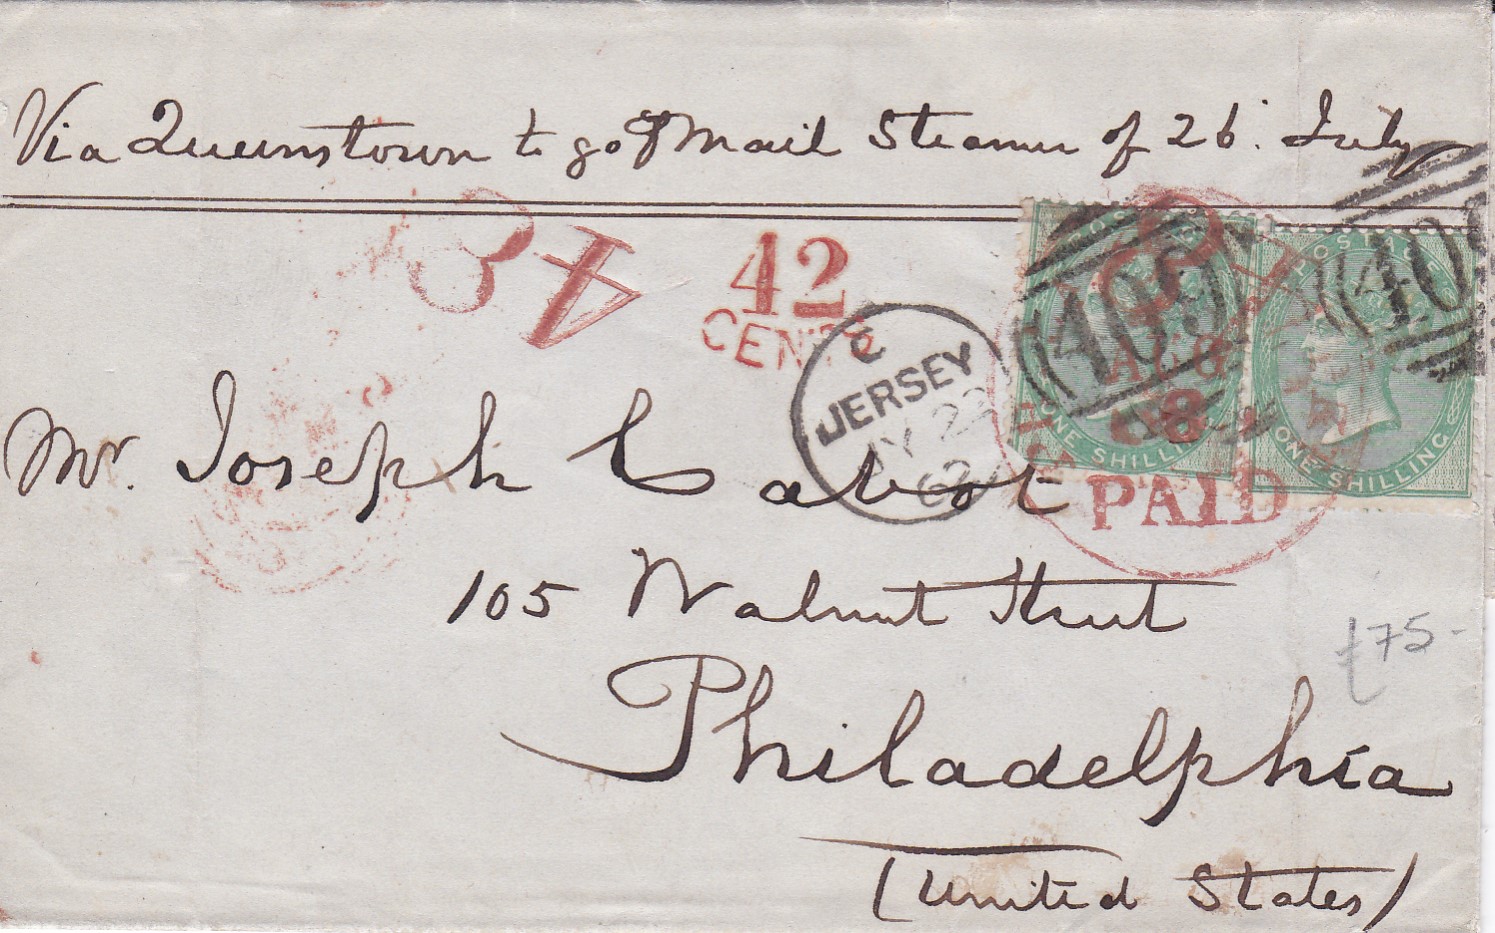 Via Queenstown to go Mail Steamer of 26. July
34
42
CENTS
C
JERSEY
JY 22
62
409
POSTAGE
ONE SHILLING
409
POSTAGE
ONE SHILLING
AUG
8
PAID
Mr. Joseph Cabot
105 Walnut Street
£75-
Philadelphia
(United States)